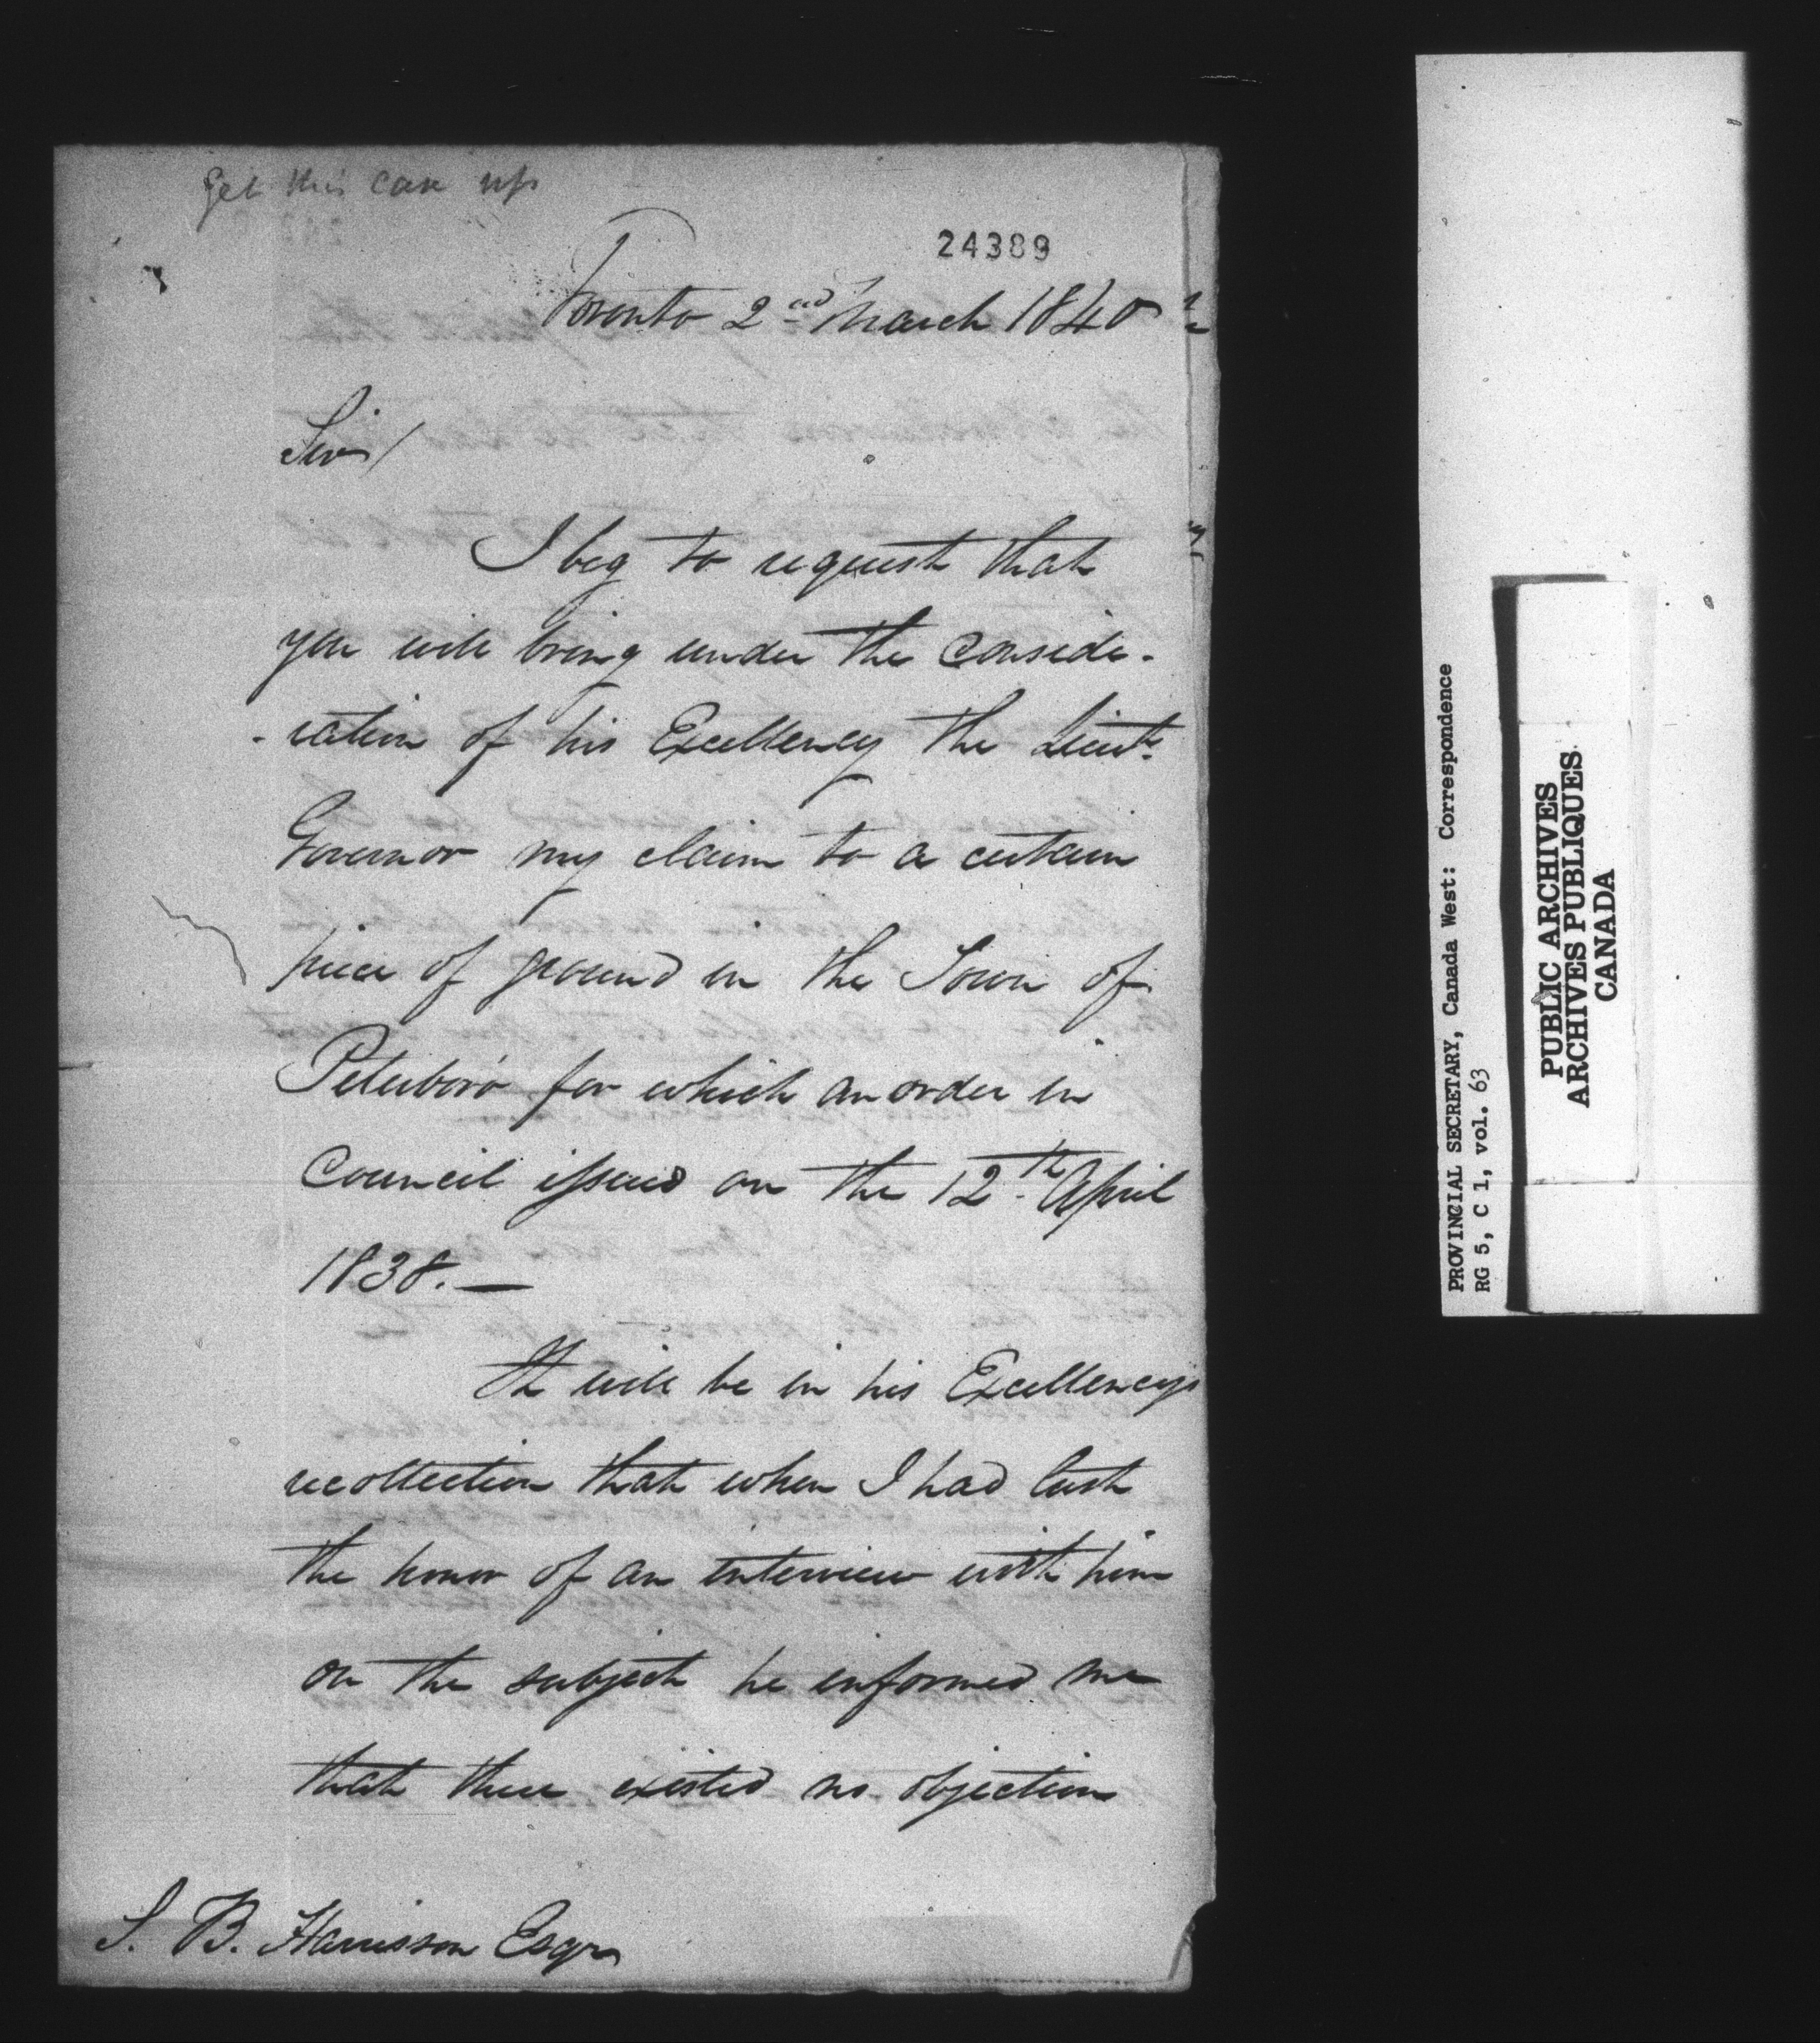 Get this case up
24389
Toronto 2nd March 1840
Sir/
I beg to request that
you will bring under the conside-
-ration of his Excellency the Lieut.
Governor my claim to a certain
piece of ground in the Town of
Peterboro' for which an order in
Council issued on the 12th April
1838. —
It will be in his Excellencys
recollection that when I had last
the honor of an interview with him
on the subject he informed me
that there existed no objection
S. B. Harrison Esqr
PROVINCIAL SECRETARY, Canada West: Correspondence
RG 5, C 1, vol. 63
PUBLIC ARCHIVES
ARCHIVES PUBLIQUES
CANADA